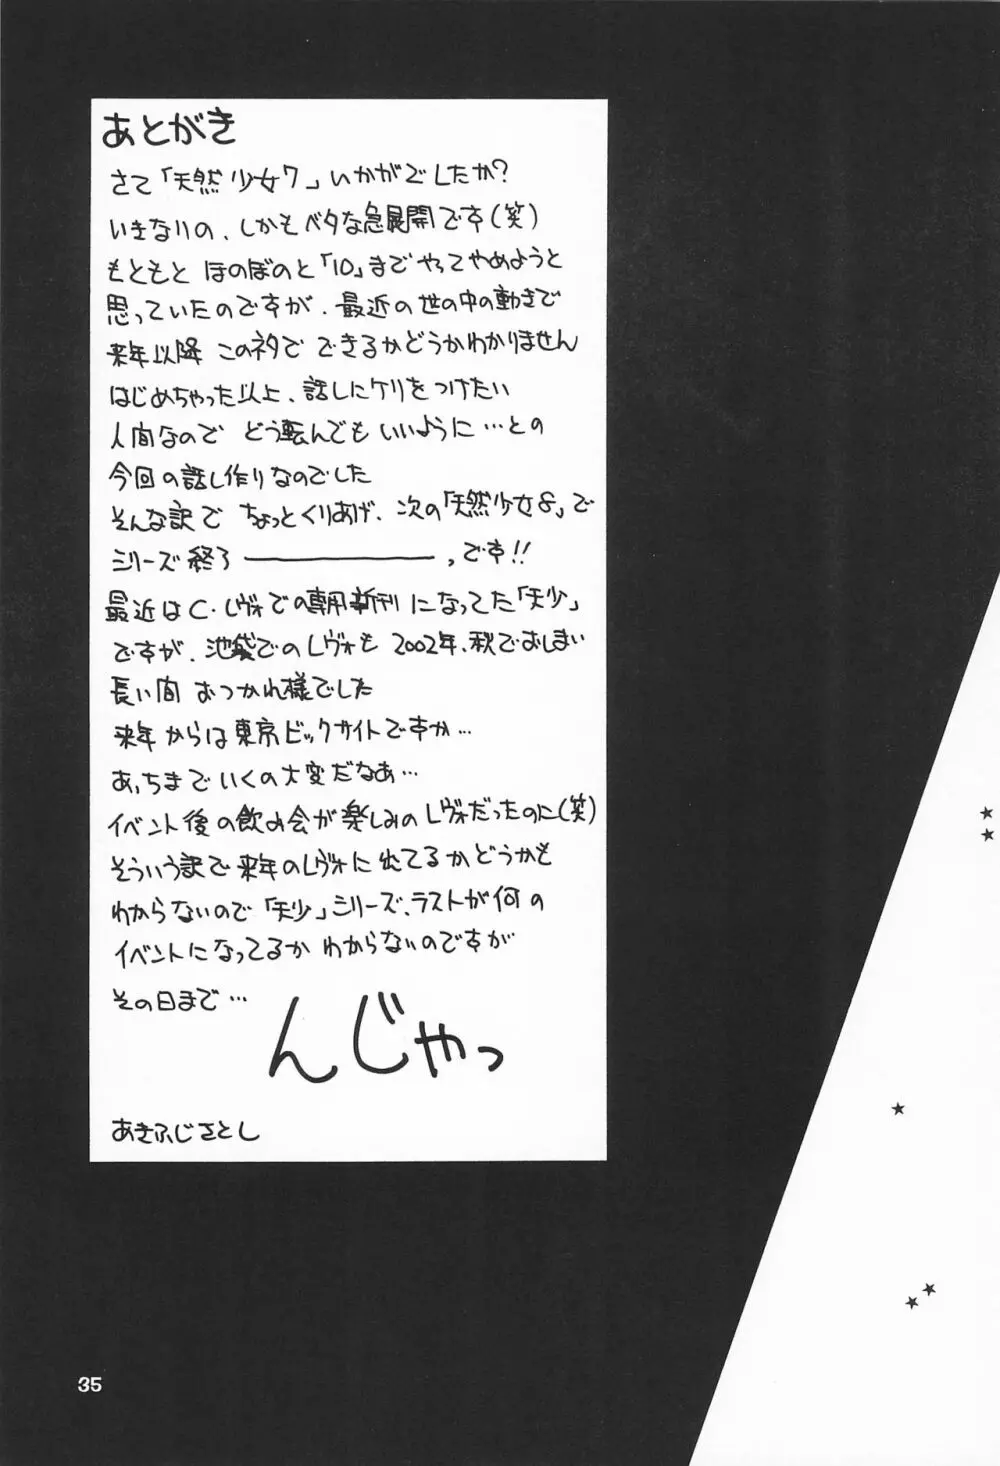 あとがき
さて「天然少女7」いかがでしたか?
いきなりの、しかもベタな急展開です(笑)
もともと ほのぼのと「10」まで やってやめようと
思っていたのですが、最近の世の中の動きで
来年以降 このネタで できるかどうかわかりません
はじめちゃった以上、話しにケリをつけたい
人間なので どう転んでも いいように…との
今回の話し作りなのでした
そんな訳で ちょっとくりあげ、次の「天然少女8」で
シリーズ終了――――――っ、です!!
最近はC・レヴォでの専用新刊になってた「天少」
ですが、池袋でのレヴォも 2002年、秋でおしまい
長い間 おつかれ様でした
来年からは東京ビックサイトですか…
あっちまでいくの大変だなあ…
イベント後の飲み会が楽しみのレヴォだったのに(笑)
そういう訳で来年のレヴォに出てるかどうかも
わからないので「天少」シリーズ、ラストが何の
イベントになってるか わからないのですが
その日まで…
んじゃっ
あきふじさとし
35